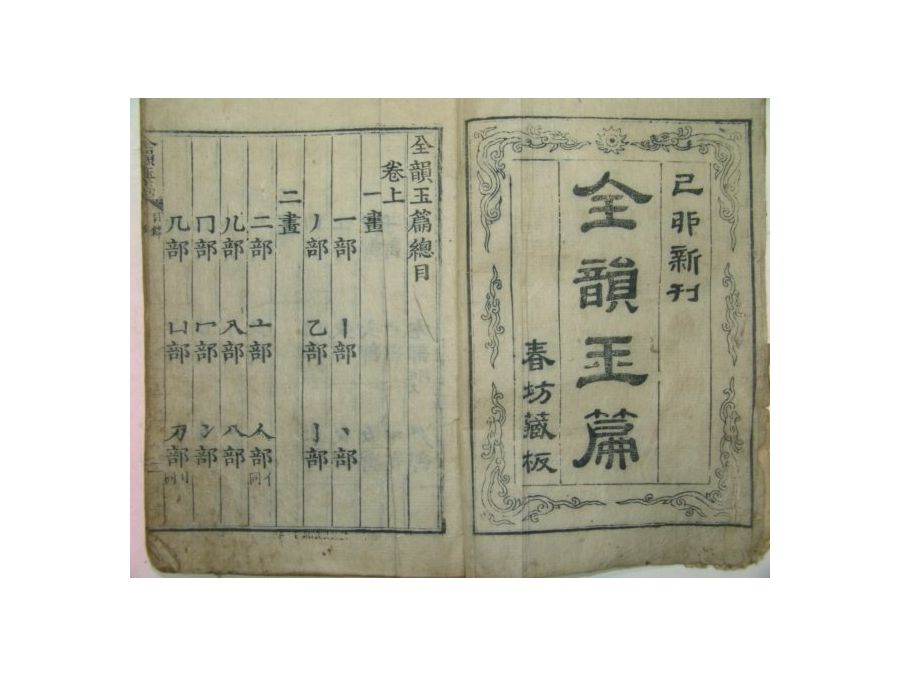 己卯新刊
全韻玉篇
春坊藏板
全韻玉篇總目
卷上
一畫
一部 丨部 丶部
丿部 乙部 亅部
二畫
二部 亠部 人部 亻同
儿部 入部 八部
冂部 冖部 冫部
几部 凵部 刀部 刂同
目錄